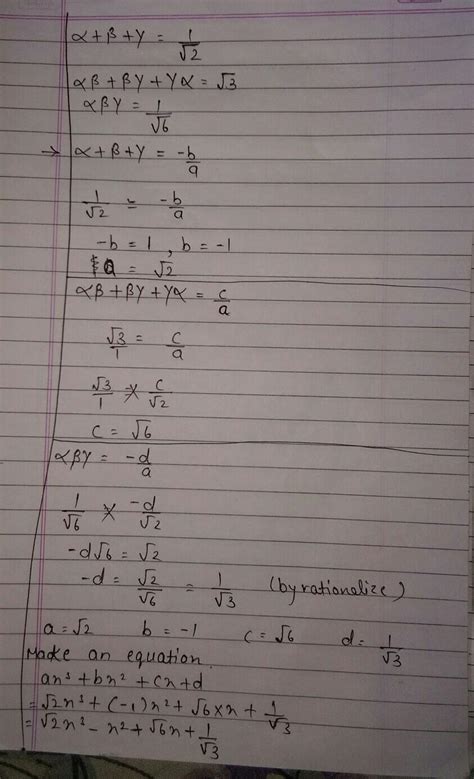 α+β+γ = 1/√2
αβ + βγ + γα = √3
αβγ = 1/√6
→ α+β+γ = -b/a
1/√2 = -b/a
-b = 1 , b = -1
a = √2
αβ + βγ + γα = c/a
√3/1 = c/a
√3/1 = c/√2
c = √6
αβγ = -d/a
1/√6 = -d/√2
-d√6 = √2
-d = √2/√6 = 1/√3 (by rationalize)
a = √2 b = -1 c = √6 d = 1/√3
Make an equation.
ax³ + bx² + cx + d
= √2x³ + (-1)x² + √6 × x + 1/√3
= √2x³ - x² + √6x + 1/√3